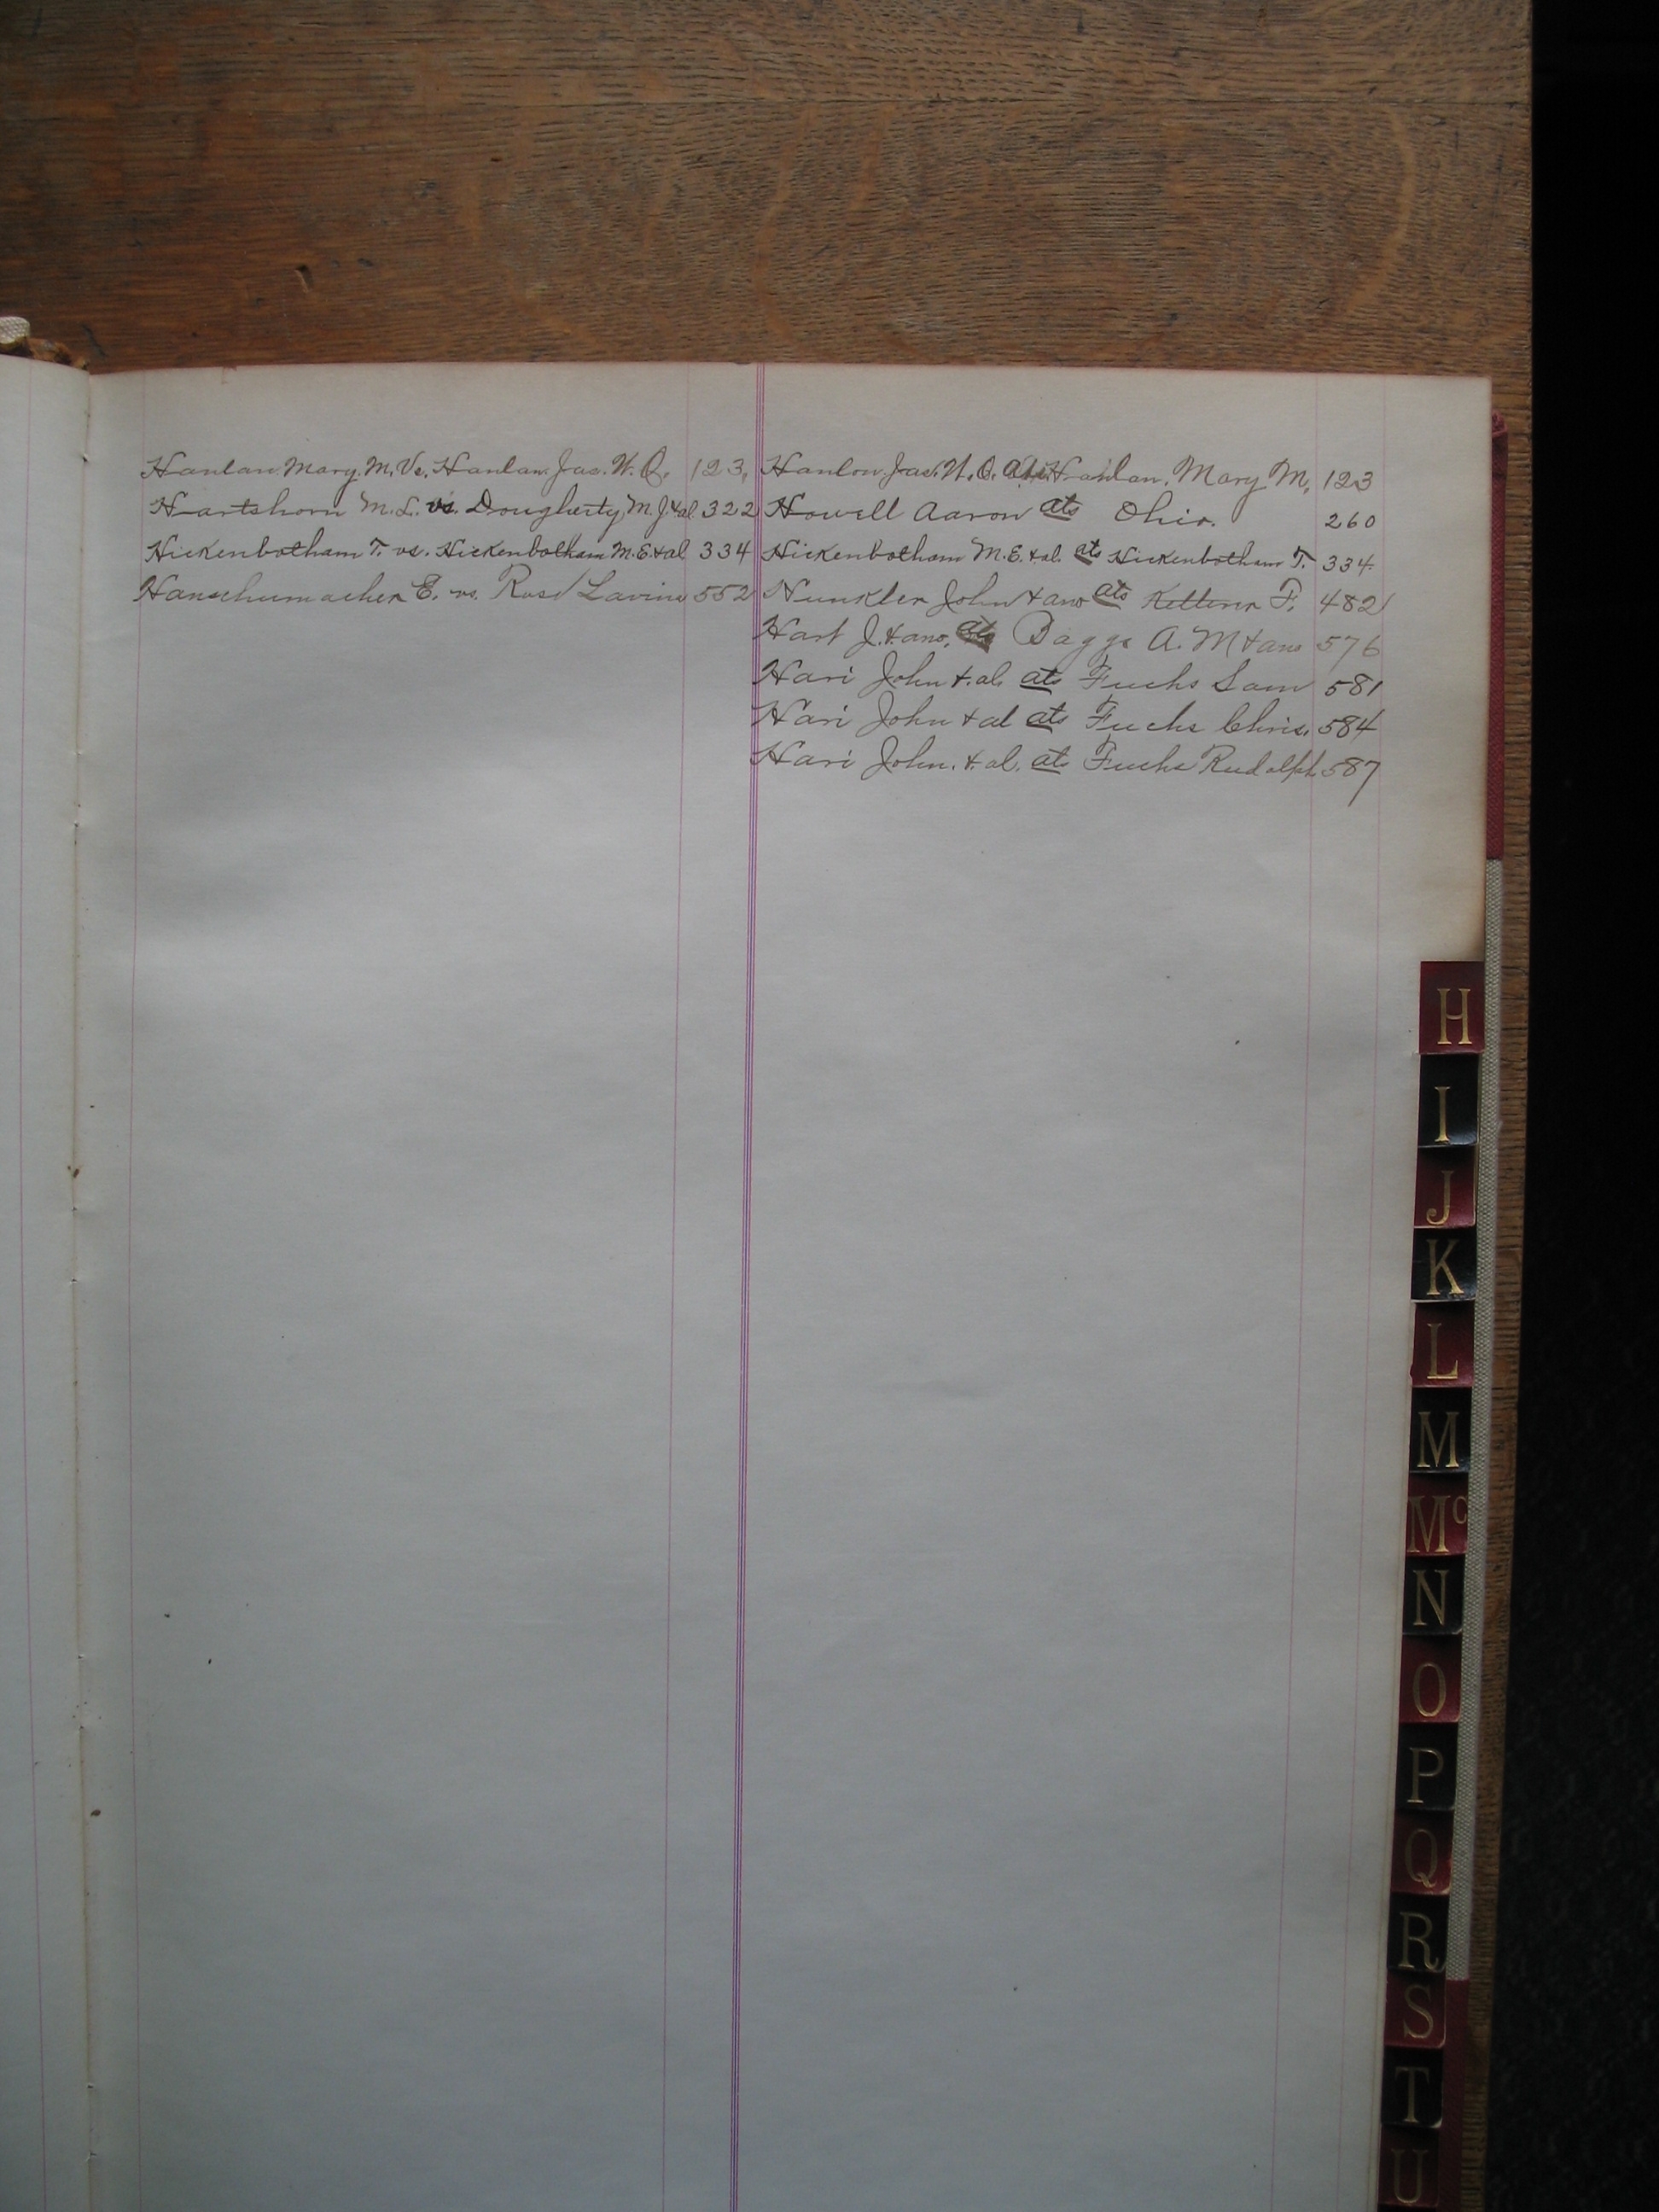 Hanlan. Mary. M. Vs. Hanlan. Jas. W. Q. 123,
Hartshorn M. L. vs. Dougherty, M. J. & al. 322
Hickenbotham T. vs. Hickenbotham M. E. & al 334
Hanschumacher E. vs. Rose Lavina 552
Hanlon. Jas. W. Q. ats. Hanlan. Mary M, 123
Howell Aaron ats Ohio. 260
Hickenbotham M. E. & al. ats Hickenbotham T. 334
Hunkler John & ano ats Kelterer F. 482
Hart J. & ano. ats Baggs A. M & ano 576
Hari John & al. ats Fuchs Sam 581
Hari John & al ats Fuchs Chris. 584
Hari John. & al. ats Fuchs Rudolph 587
H
I
J
K
L
M
Mc
N
O
P
Q
R
S
T
U